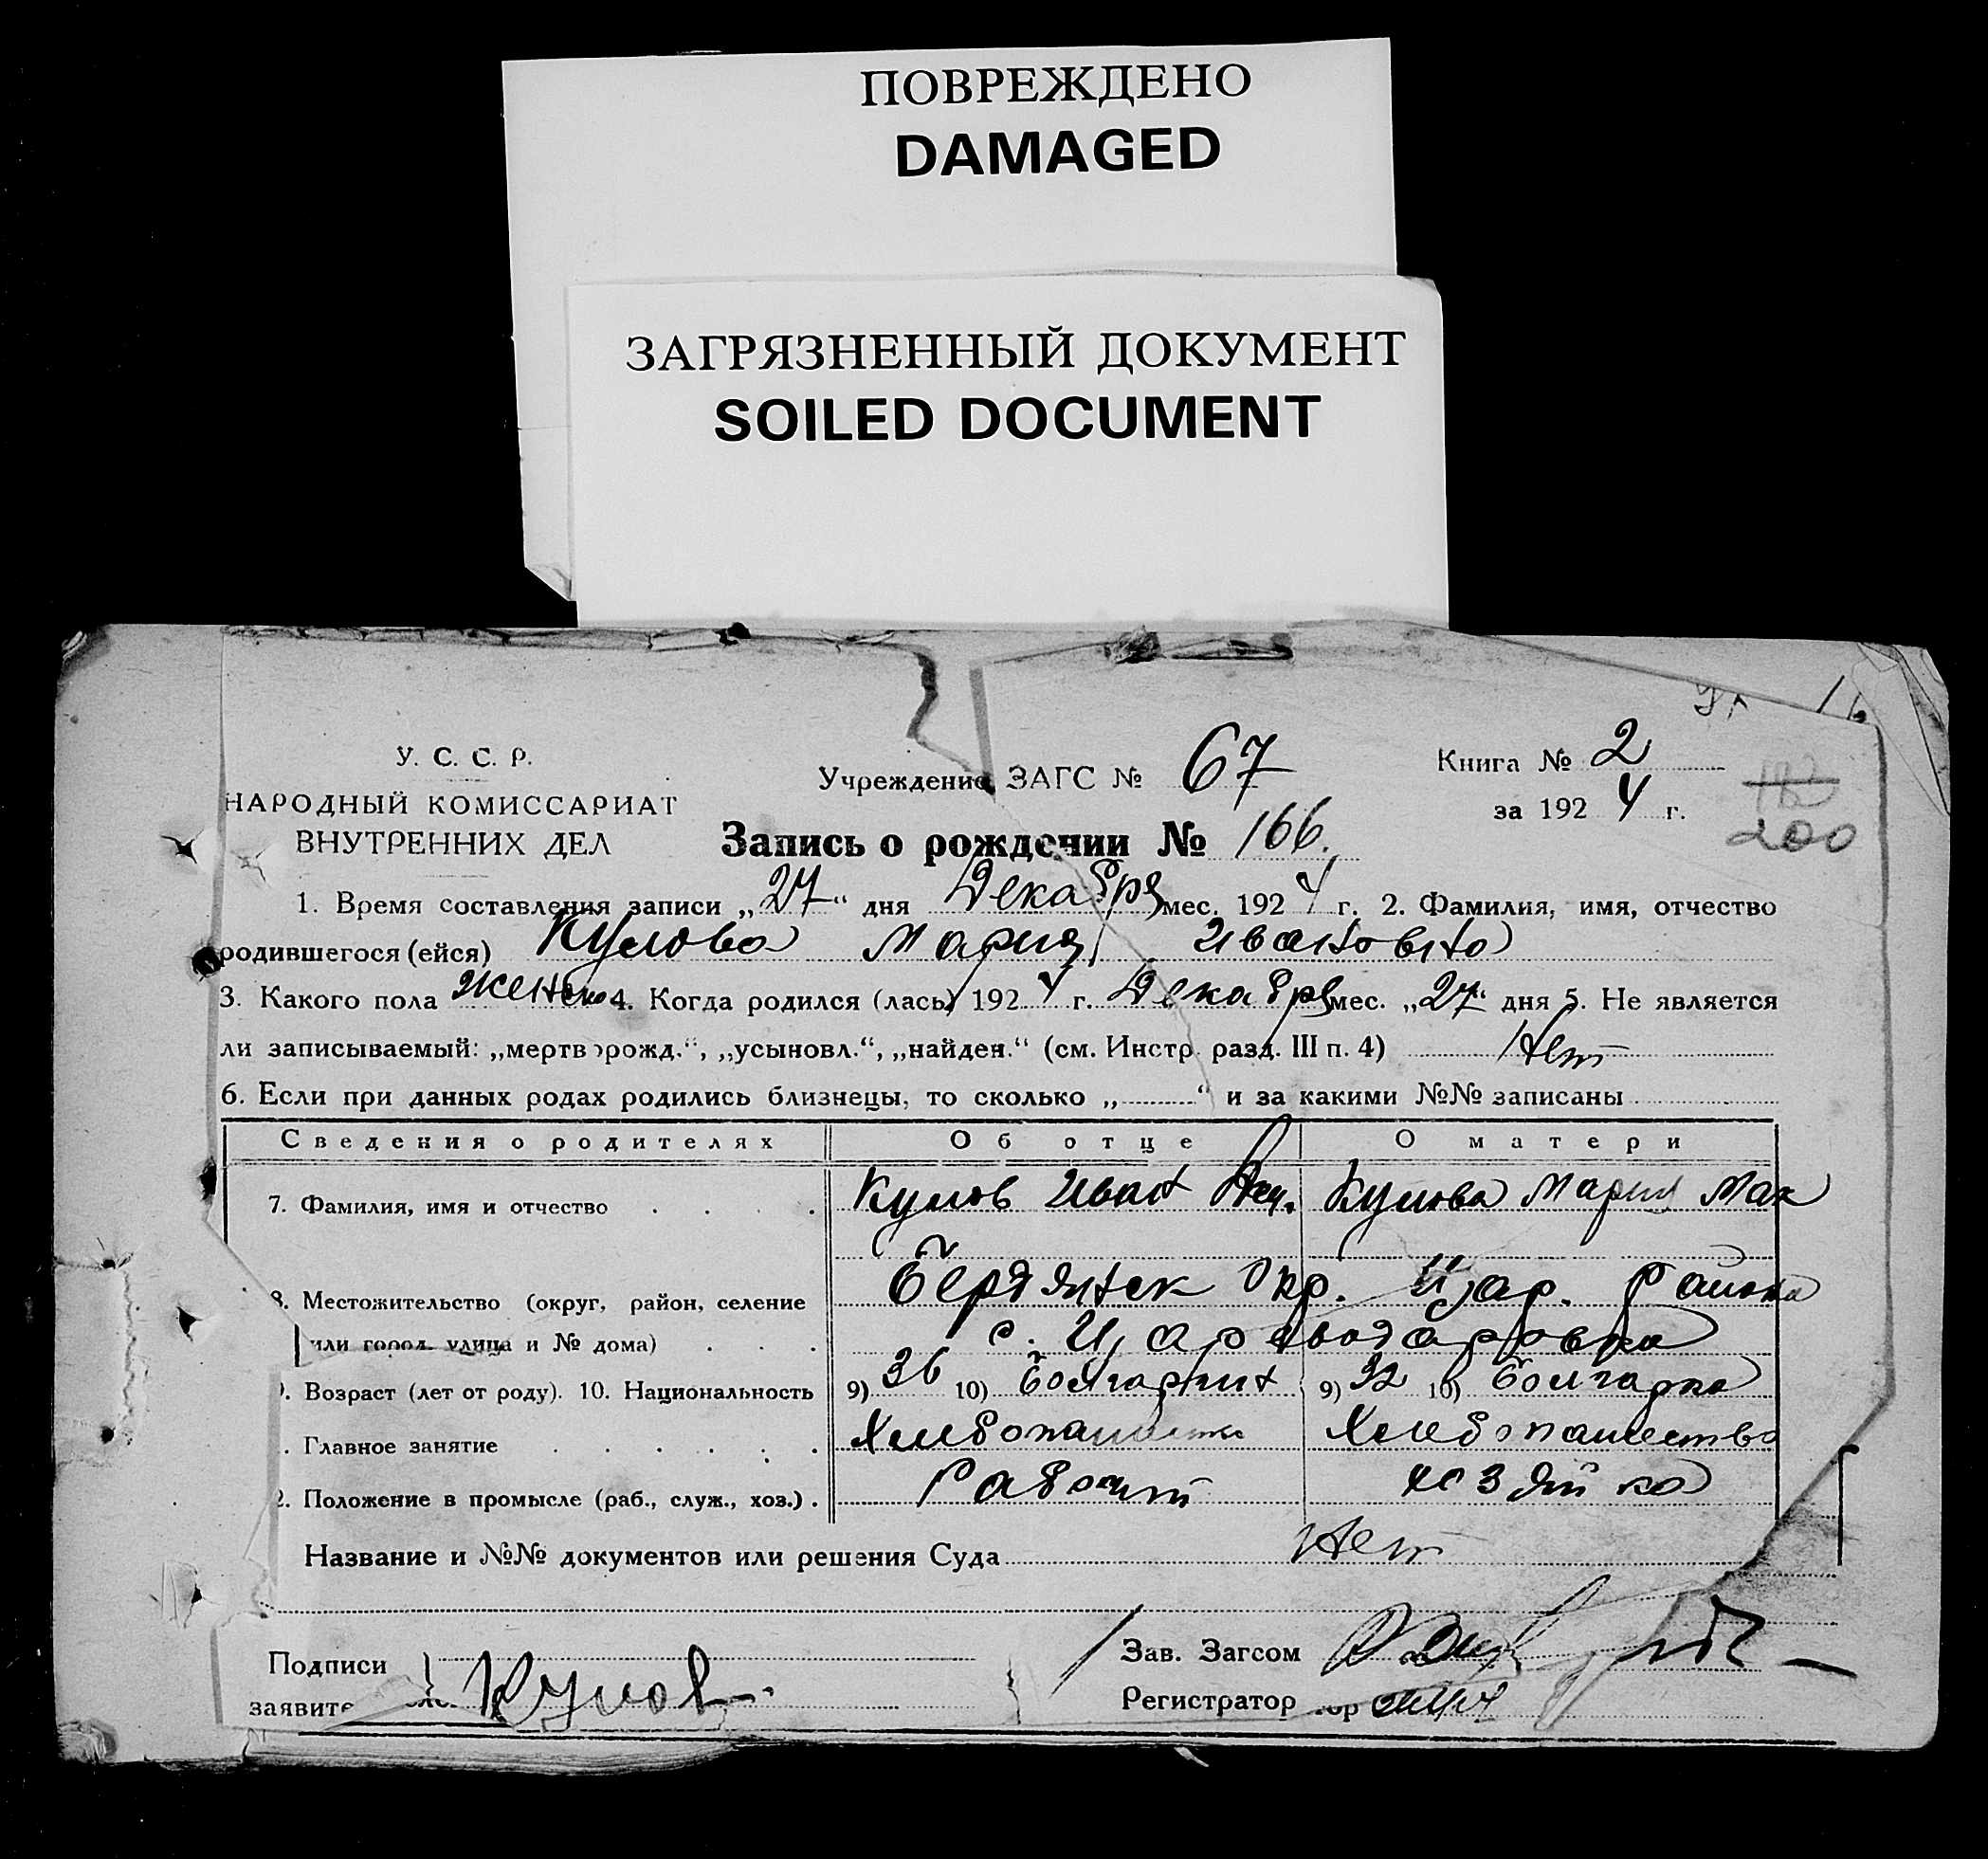 ПОВРЕЖДЕНО
DAMAGED
ЗАГРЯЗНЕННЫЙ ДОКУМЕНТ
SOILED DOCUMENT
У. С. С. Р.
НАРОДНЫЙ КОМИССАРИАТ
ВНУТРЕННИХ ДЕЛ
Учреждение ЗАГС № 67
Книга № 2
за 1924 г.
200
Запись о рождении № 166.
1. Время составления записи „27“ дня Декабря мес. 1924 г. 2. Фамилия, имя, отчество
родившегося (ейся) Кулова Мария Ивановна
3. Какого пола женско 4. Когда родился (лась) 1924 г. Декабря мес. „27“ дня 5. Не является
ли записываемый: „мертворожд.“, „усыновл.“, „найден.“ (см. Инстр. разд. III п. 4) Нет
6. Если при данных родах родились близнецы, то сколько „ “ и за какими №№ записаны
Сведения о родителях Об отце О матери
7. Фамилия, имя и отчество Кулов Иван Кулова Мария Мак
8. Местожительство (округ, район, селение Бердянск Окр. Цар. Района
или город, улица и № дома) с. Царедаровка
9. Возраст (лет от роду). 10. Национальность 9) 36 10) болгарин 9) 32 10) болгарка
. Главное занятие Хлебопашество Хлебопашество
2. Положение в промысле (раб., служ., хоз.) Работит хозяйка
Название и №№ документов или решения Суда Нет
Подписи Зав. Загсом
заявите Кулов Регистратор